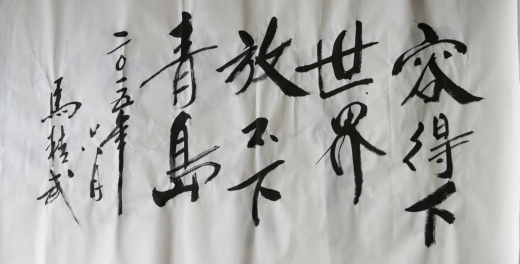 容得下
世界
放不下
青島
二〇一五年
八月
馬桂武